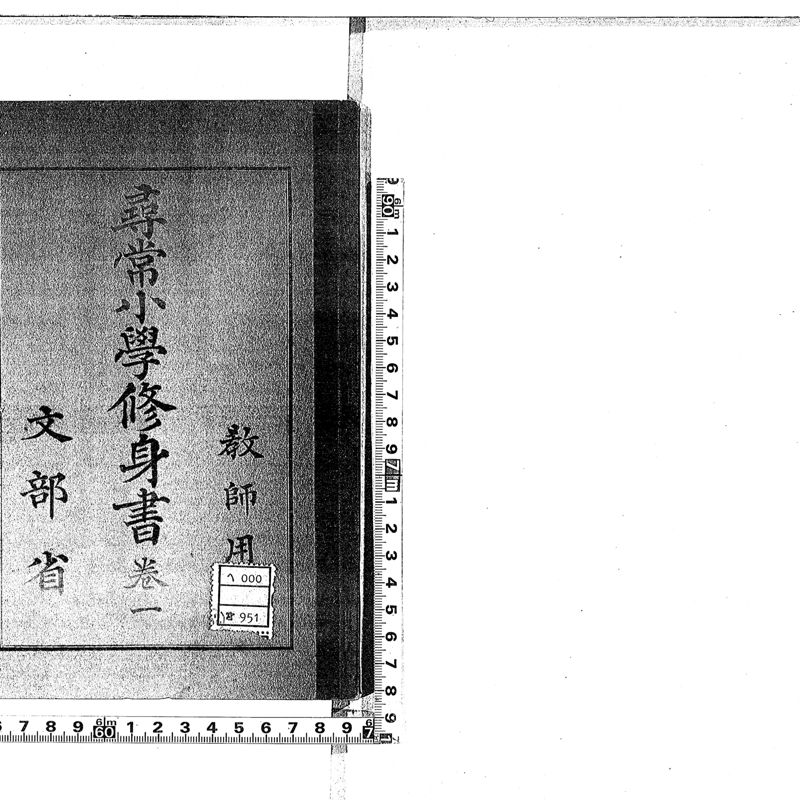 教師用
尋常小學修身書 卷一
文部省
ヘ 000
951
6m
90 1 2 3 4 5 6 7 8 9 7m 1 2 3 4 5 6 7 8 9
7 8 9 60 1 2 3 4 5 6 7 8 9
6m